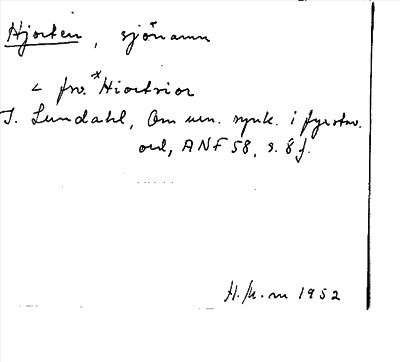 Hjorten, sjönamn
< fsv. *Hiortsior
I. Lundahl, Om uen. synk. i fyrstav.
ord, ANF 58, s. 8 f.
H. m 1952